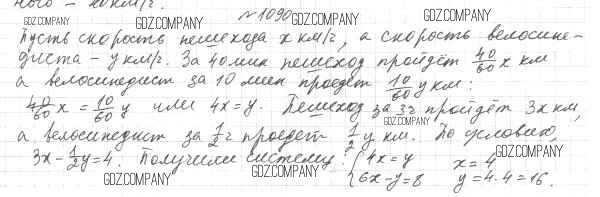 ного – 10 км/ч.
№1090 GDZ.COMPANY GDZ.COMPANY GDZ.COMPANY
Пусть скорость пешехода x км/ч, а скорость велосипе-
диста – y км/ч. За 40 мин пешеход пройдёт 40/60 x км
а велосипедист за 10 мин проедет 10/60 y км:
40/60 x = 10/60 y или 4x = y. Пешеход за 3ч пройдёт 3x км,
GDZ.COMPANY
а велосипедист за 1/2 ч проедет 1/2 y км. По условию,
3x - 1/2 y = 4. Получили систему: { 4x = y x = 4 GDZ.COMPANY
GDZ.COMPANY GDZ.COMPANY 6x - y = 8 y = 4·4 = 16.